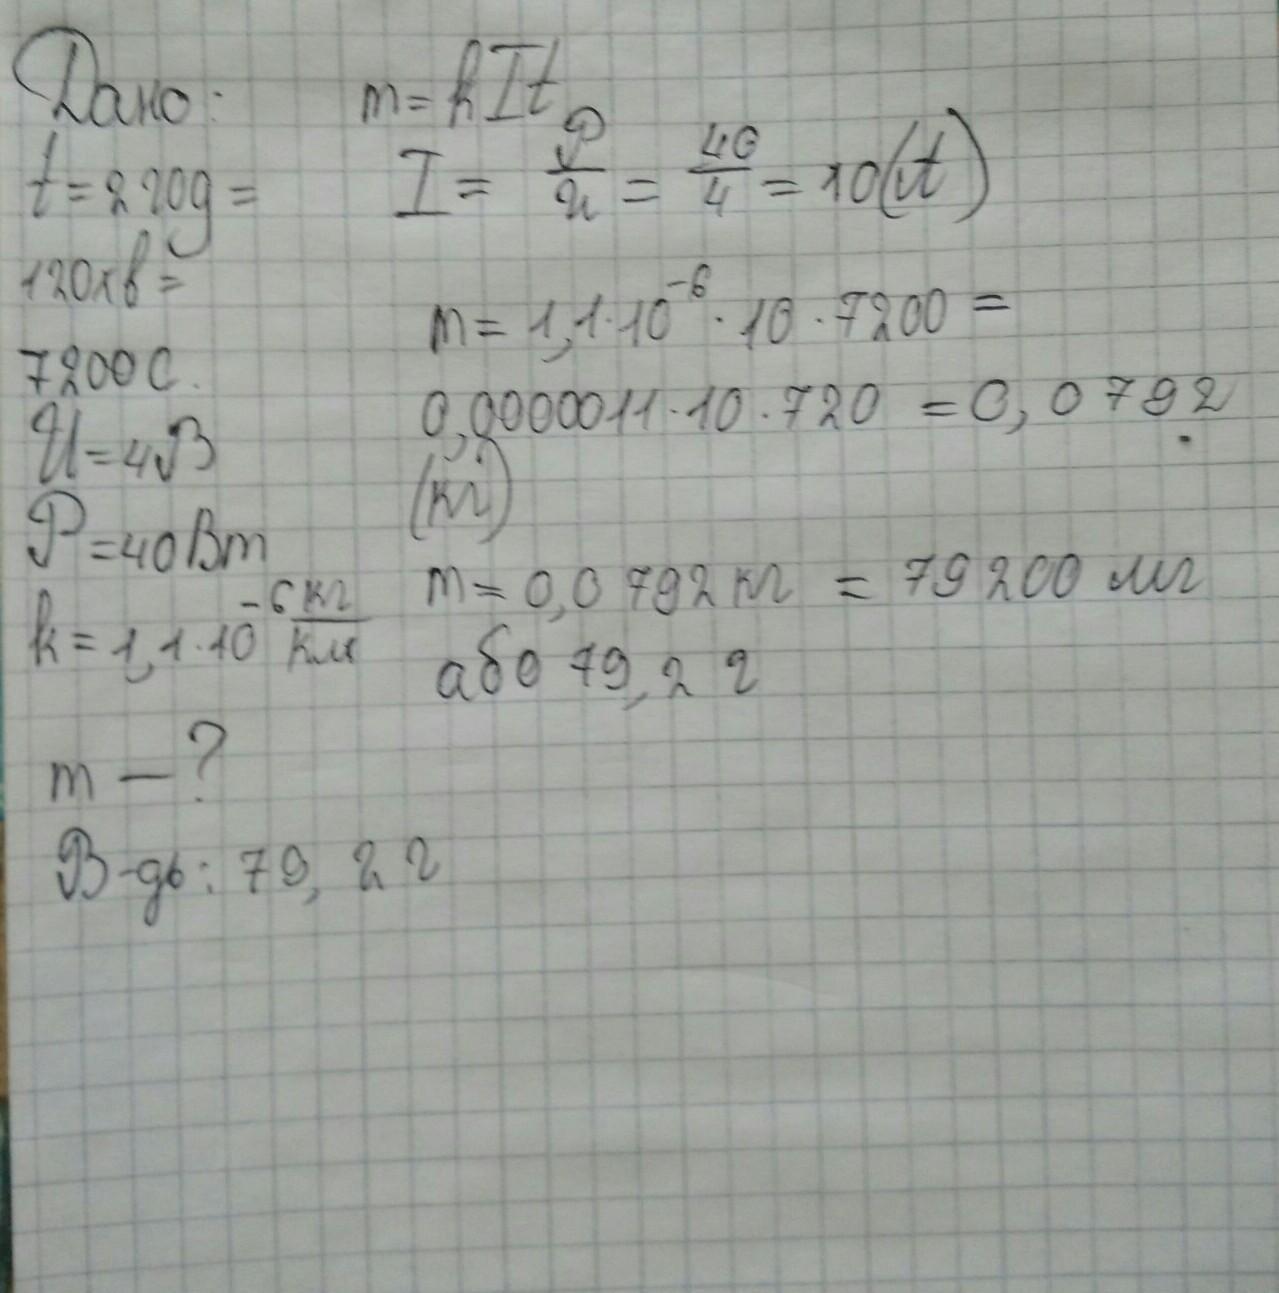 Дано:
t = 2 год =
120 хв =
7200 с.
U = 4 В
P = 40 Вт
k = 1,1·10⁻⁶ кг/Кл
m – ?
m = kIt
I = P/U = 40/4 = 10 (А)
m = 1,1·10⁻⁶·10·7200 =
0,0000011·10·720 = 0,0792
(кг)
m = 0,0792 кг = 79200 мг
або 79,2 г
В-дь: 79,2 г